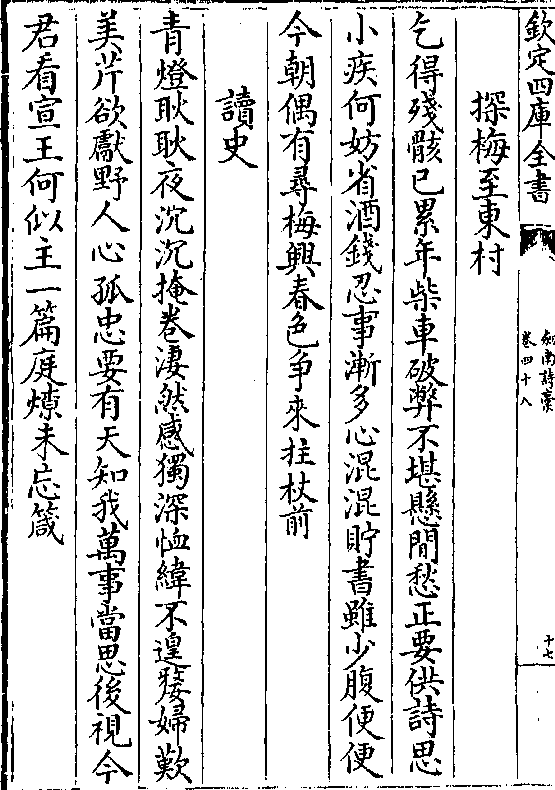 欽定四庫全書
劍南詩藁
卷四十八
十七
探梅至東村
乞得殘骸已累年柴車破弊不堪懸閒愁正要供詩思
小疾何妨省酒錢忍事漸多心混混貯書雖少腹便便
今朝偶有尋梅興春色争來拄杖前
讀史
青燈耿耿夜沉沉掩卷淒然感獨深恤緯不遑嫠婦歎
美芹欲獻野人心孤忠要有天知我萬事當思後視今
君看宣王何似主一篇庭燎未忘箴